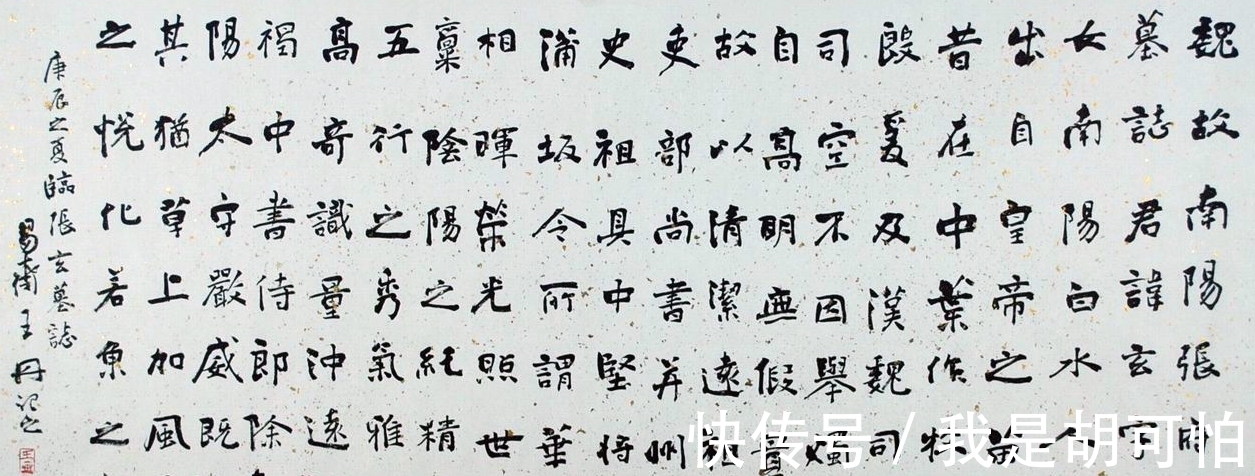 魏故南陽張府
墓誌君諱玄字
女南陽白水人
出自皇帝之苗
昔在中葉作牧
殷爰及漢魏司
司空不因舉燭
自高明無假置
故以清潔遠
吏部尚書并州
史祖具中堅將
蒲坂令所謂華
相暉榮光照世
稟陰陽之純精
五行之秀氣雅
高奇識量沖遠
褐中書侍郎除
陽太守嚴威既
其猶草上加風
之悅化若魚之
庚辰之夏臨張玄墓誌
王丹記之
快传号/我是胡可怕